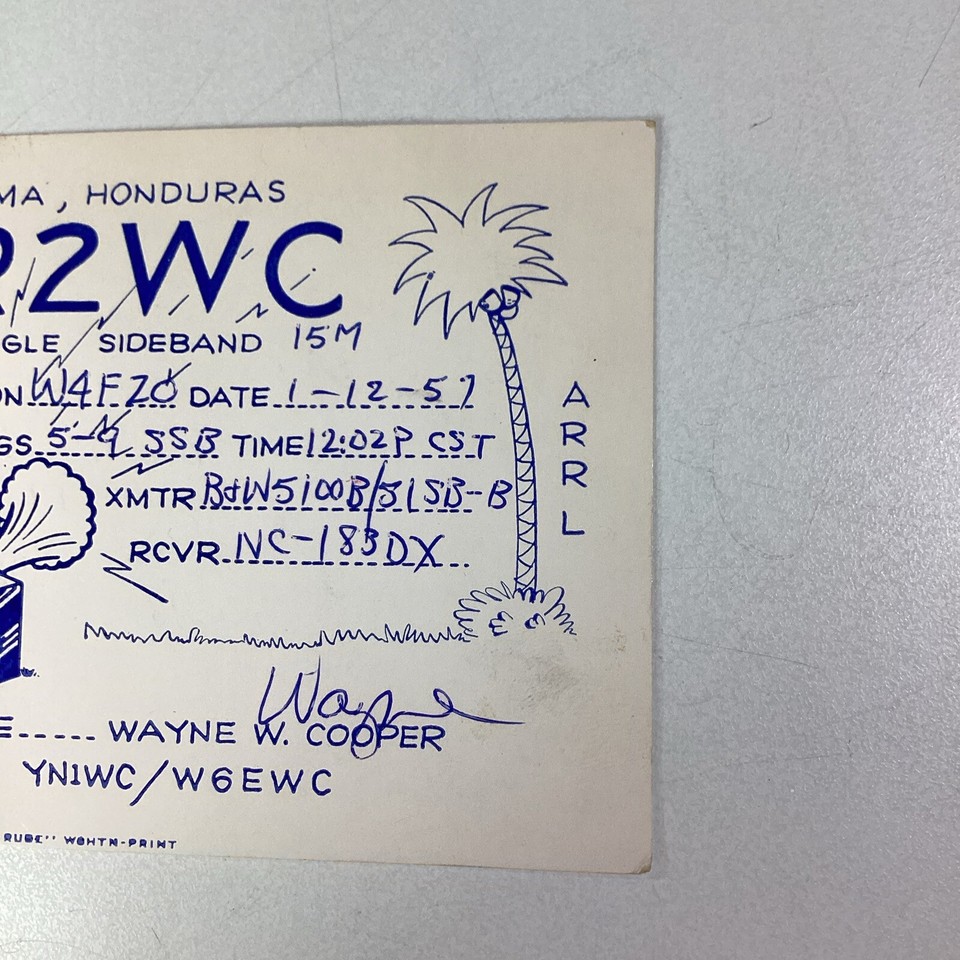 MA, HONDURAS
R2WC
GLE SIDEBAND 15M
ON W4FZO DATE 1-12-57
GS 5-9 SSB TIME 12:02P CST
XMTR B&W5100B/51SB-B
RCVR NC-183DX
A
R
R
L
Wayne
E----- WAYNE W. COOPER
YN1WC/W6EWC
RUBE" WØHTN-PRINT